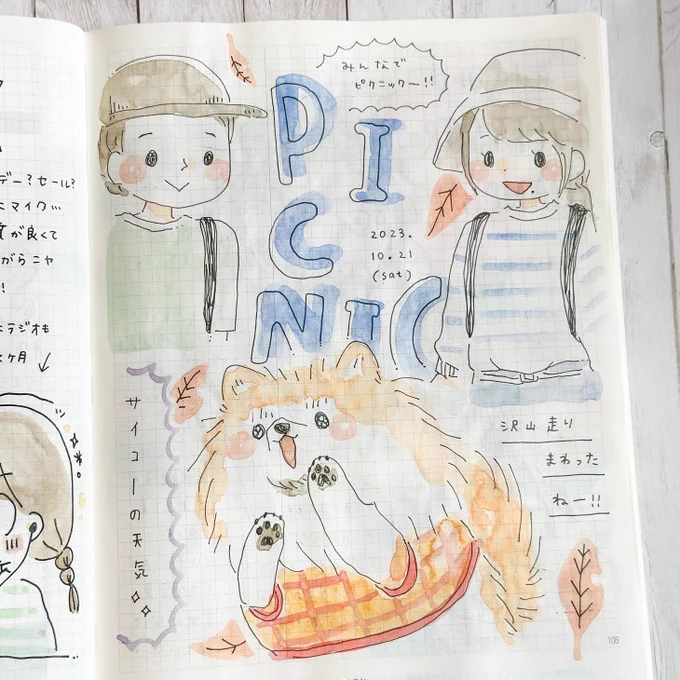 デー?セール?
マイク…
が良くて
がらニヤ
!
ラジオも
ヶ月
みんなで
ピクニックー!!
PIC
NIC
2023.
10.21
(sat)
サイコーの天気
沢山走り
まわった
ねー!!
108